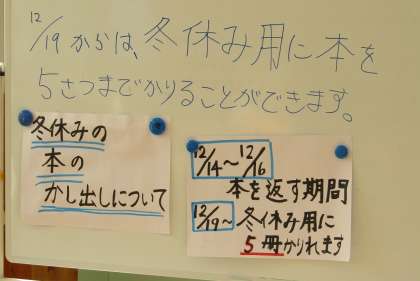 12/19からは、冬休み用に本を
5さつまでかりることができます。
冬休みの
本の
かし出しについて
12/14〜12/16
本を返す期間
12/19〜 冬休み用に
5冊かりれます